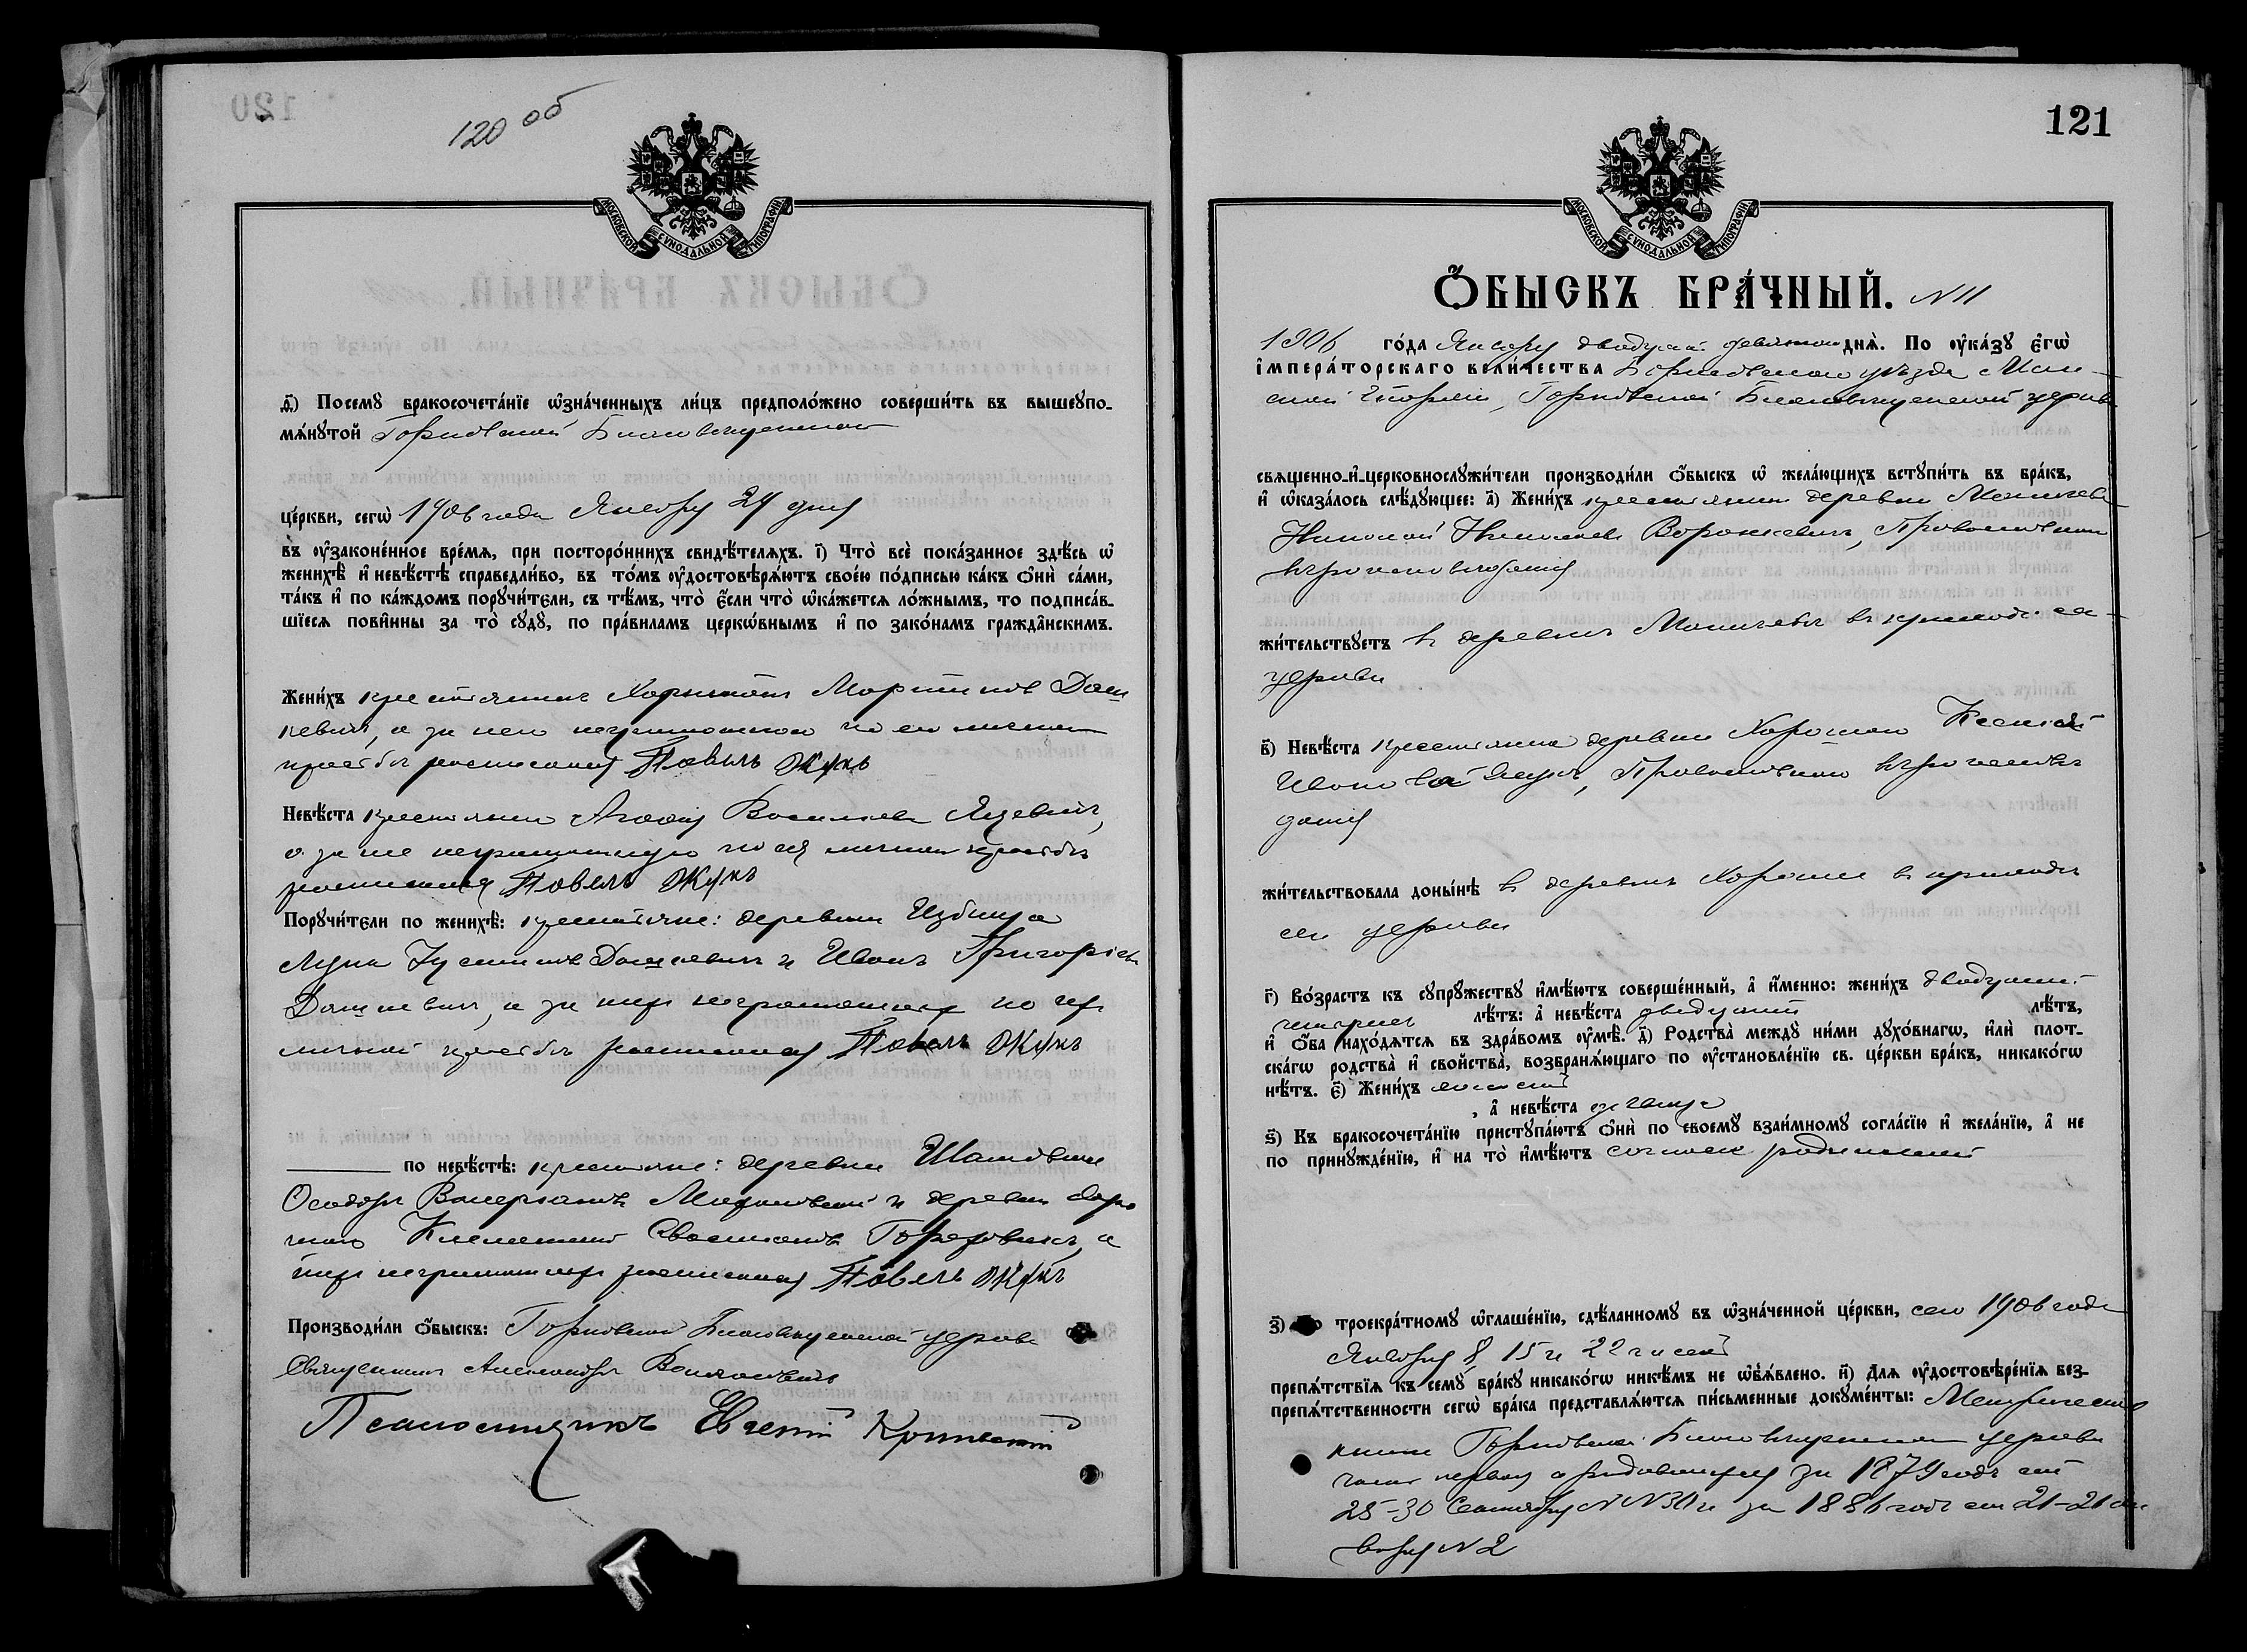 120 об
МОСКОВСКОЙ СѴНОДАЛЬНОЙ ТИПОГРАФІИ
ѳ҃) Посемꙋ бракосочета́нїе ѡ҆зна́ченныхъ ли́цъ предполо́жено соверши́ть въ вышеꙋпо-
мѧ́нꙋтой Горковской Благовещенской
це́ркви, сегѡ̀ 1906 года Января 29 дня
въ ᲂу҆законе́нное вре́мѧ, при посторо́ннихъ свидѣ́телѧхъ. і҃) Что̀ всѐ пока́занное здѣ́сь ѡ҆
женихѣ̀ и҆ невѣ́стѣ справедли́во, въ то́мъ ᲂу҆достовѣрѧ́ютъ свое́ю по́дписью ка́къ ѻ҆нѝ са́ми,
та́къ и҆ по ка́ждомъ порꙋчи́тели, съ тѣ́мъ, что̀ є҆́сли что̀ ѡ҆ка́жетсѧ ло́жнымъ, то подписа́в-
шїесѧ пови́нны за то̀ сꙋдꙋ̀, по пра́виламъ церкѡ́внымъ и҆ по зако́намъ гражда̑нскимъ.
Жени́хъ крестьянинъ Харитонъ Мартиновъ Даш
кевичъ, а за него неграмотного по его личной
просьбѣ росписался Павелъ Жукъ
Невѣ́ста крестьянка Агафія Васильева Язевичъ,
а за нее неграмотную по ея личной просьбѣ
росписался Павелъ Жукъ
Порꙋчи́тели по женихѣ̀: крестьяне: деревни Избища
Лука Іустиновъ Дашкевичъ и Иванъ Григорьевъ
Дашкевичъ, а за нихъ неграмотныхъ по ихъ
личной просьбѣ росписался Павелъ Жукъ
по невѣ́стѣ: крестьяне: деревни
Ѳеодоръ и деревни Хоро
шаго а
нихъ неграмотныхъ росписался Павелъ Жукъ
Производи́ли ѻ҆́быскъ: Горковской Благовещенской церкви
Священникъ Александръ
Псаломщикъ Евгеній
121
МОСКОВСКОЙ СѴНОДАЛЬНОЙ ТИПОГРАФІИ
Ѻ҆́БЫСКЪ БРА́ЧНЫЙ. N 11
1906 го́да Января двадцать девятого днѧ̀. По ᲂу҆ка́зꙋ є҆гѡ̀
і҆мпера́торскаго вели́чества Борисовского уѣзда Мин-
ской Епархіи, Горковской Благовещенской церкви
свѧщенно-и҆-церковнослꙋжи́тели производи́ли ѻ҆́быскъ ѡ҆ жела́ющихъ встꙋпи́ть въ бра́къ,
и҆ ѡ҆каза́лось слѣ́дꙋющее: а҃) Жени́хъ крестьянинъ деревни
Николай Николаевъ Воронкевичъ, Православнаго
вѣроисповѣданія
жи́тельствꙋетъ въ деревнѣ въ приходѣ сей
церкви
в҃) Невѣ́ста крестьянка деревни Хорошаго Ксенія
Иванова Православнаго вѣроисповѣ
данія
жи́тельствовала доны́нѣ въ деревнѣ Хорошее въ приходѣ
сей церкви
г҃) Во́зрастъ къ сꙋпрꙋ́жествꙋ и҆мѣ́ютъ соверше́нный, а҆ и҆́менно: жени́хъ двадцати
лѣ́тъ: а҆ невѣ́ста двадцати лѣ́тъ,
и҆ ѻ҆́ба нахо́дѧтсѧ въ здра́вомъ ᲂу҆мѣ̀. д҃) Родства̀ междꙋ̀ ни́ми дꙋхо́внагѡ, и҆лѝ плот-
ска́гѡ родства̀ и҆ свойства̀, возбранѧ́ющаго по ᲂу҆становле́нїю св. це́ркви бра́къ, никако́гѡ
нѣ́тъ. є҃) Жени́хъ холостой
, а҆ невѣ́ста дѣвица
ѕ҃) Къ бракосочета́нїю пристꙋпа́ютъ ѻ҆нѝ по своемꙋ̀ взаи́мномꙋ согла́сїю и҆ жела́нїю, а҆ не
по принꙋжде́нїю, и҆ на то̀ и҆мѣ́ютъ согласіе родителей
з҃) троекра́тномꙋ ѡ҆глаше́нїю, сдѣ́ланномꙋ въ ѡ҆зна́ченной це́ркви, сего 1906 года
Января 8, 15 и 22 чиселъ
препѧ́тствїѧ къ семꙋ̀ бра́кꙋ никако́гѡ никѣ́мъ не ѡ҆б̾ѧ́влено. и҃) Длѧ ᲂу҆достовѣре́нїѧ без-
препѧ́тственности сегѡ̀ бра́ка представлѧ́ютсѧ пи́сьменные докꙋме́нты: Метрическія
книги Горковской Благовещенской церкви
часть первая о родившихся за 1879 годъ
25-30 Сентября N 30 и за 1886 годъ 21-21 Ян
варя N 2